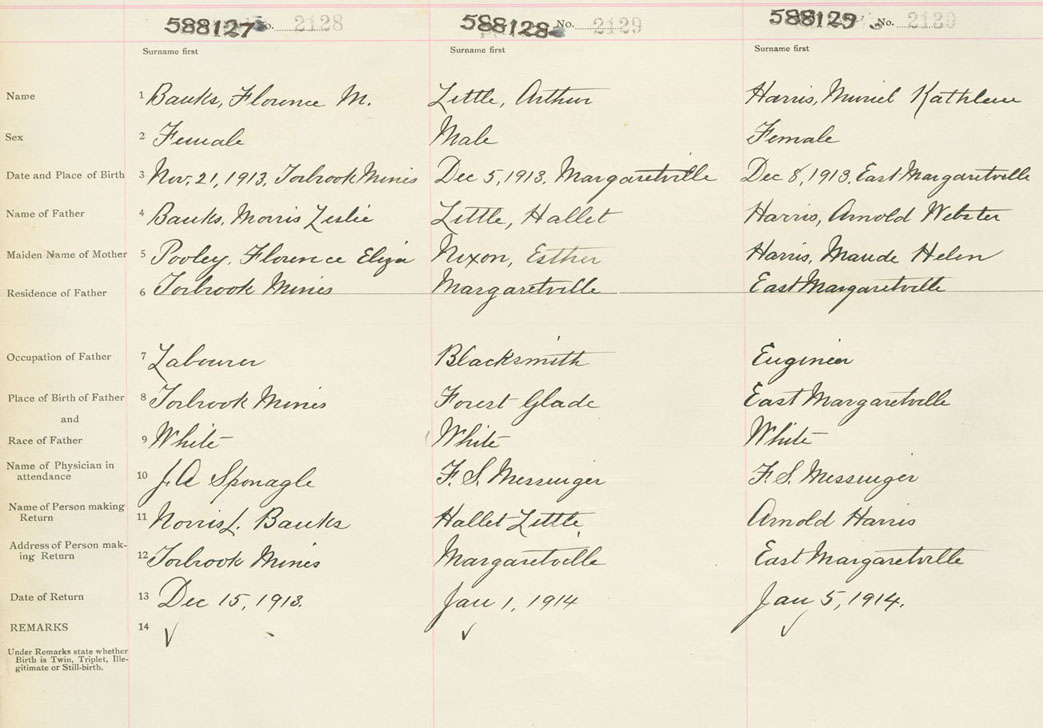 588127 No. 2128 588128 No. 2129 588129 No. 2130
Surname first Surname first Surname first
Name 1 Banks, Florence M. Little, Arthur Harris, Muriel Kathleen
Sex 2 Female Male Female
Date and Place of Birth 3 Nov. 21, 1913, Torbrook Mines Dec 5, 1913, Margaretville Dec 8, 1913, East Margaretville
Name of Father 4 Banks, Morris Leslie Little, Hallet Harris, Arnold Webster
Maiden Name of Mother 5 Pooley, Florence Eliza Nixon, Esther Harris, Maude Helen
Residence of Father 6 Torbrook Mines Margaretville East Margaretville
Occupation of Father 7 Labourer Blacksmith Engineer
Place of Birth of Father 8 Torbrook Mines Forest Glade East Margaretville
and
Race of Father 9 White White White
Name of Physician in
attendance 10 J. A Sponagle F. S. Messinger F. S. Messinger
Name of Person making
Return 11 Norris L. Banks Hallet Little Arnold Harris
Address of Person mak-
ing Return 12 Torbrook Mines Margaretville East Margaretville
Date of Return 13 Dec 15, 1913. Jan 1, 1914 Jan 5, 1914.
REMARKS 14 √ √ √
Under Remarks state whether
Birth is Twin, Triplet, Ille-
gitimate or Still-birth.